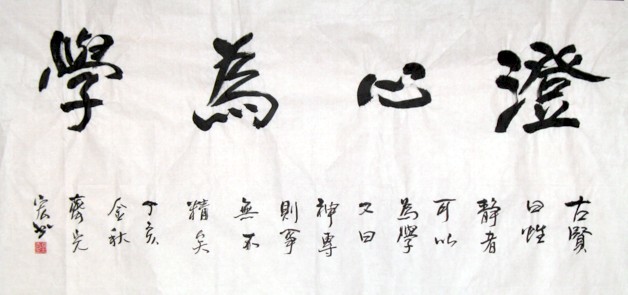 澄心為學
古賢
曰惟
静者
可以
為學
又曰
神專
則事
無不
精矣
丁亥
金秋
宏